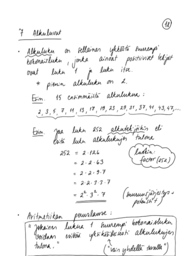 7 Alkuluvut
• Alkuluku on sellainen ykköstä suurempi
kokonaisluku, jonka ainoat positiiviset tekijät
ovat luku 1 ja luku itse.
• pienin alkuluku on 2.
Esim. 15 ensimmäistä alkulukua:
2, 3, 5, 7, 11, 13, 17, 19, 23, 29, 31, 37, 41, 43, 47, ...
Esim. Jaa luku 252 alkutekijöihin eli
esitä luku alkulukujen tulona.
252 = 2·126
= 2·2·63
= 2·2·3·21
= 2·2·3·3·7
= 2²·3²·7
factor(252)
• Aritmetiikan peruslause:
"Jokainen lukua 1 suurempi kokonaisluku
voidaan esittää yksikäsitteisesti alkulukujen
tulona."
"vain yhdellä tavalla"